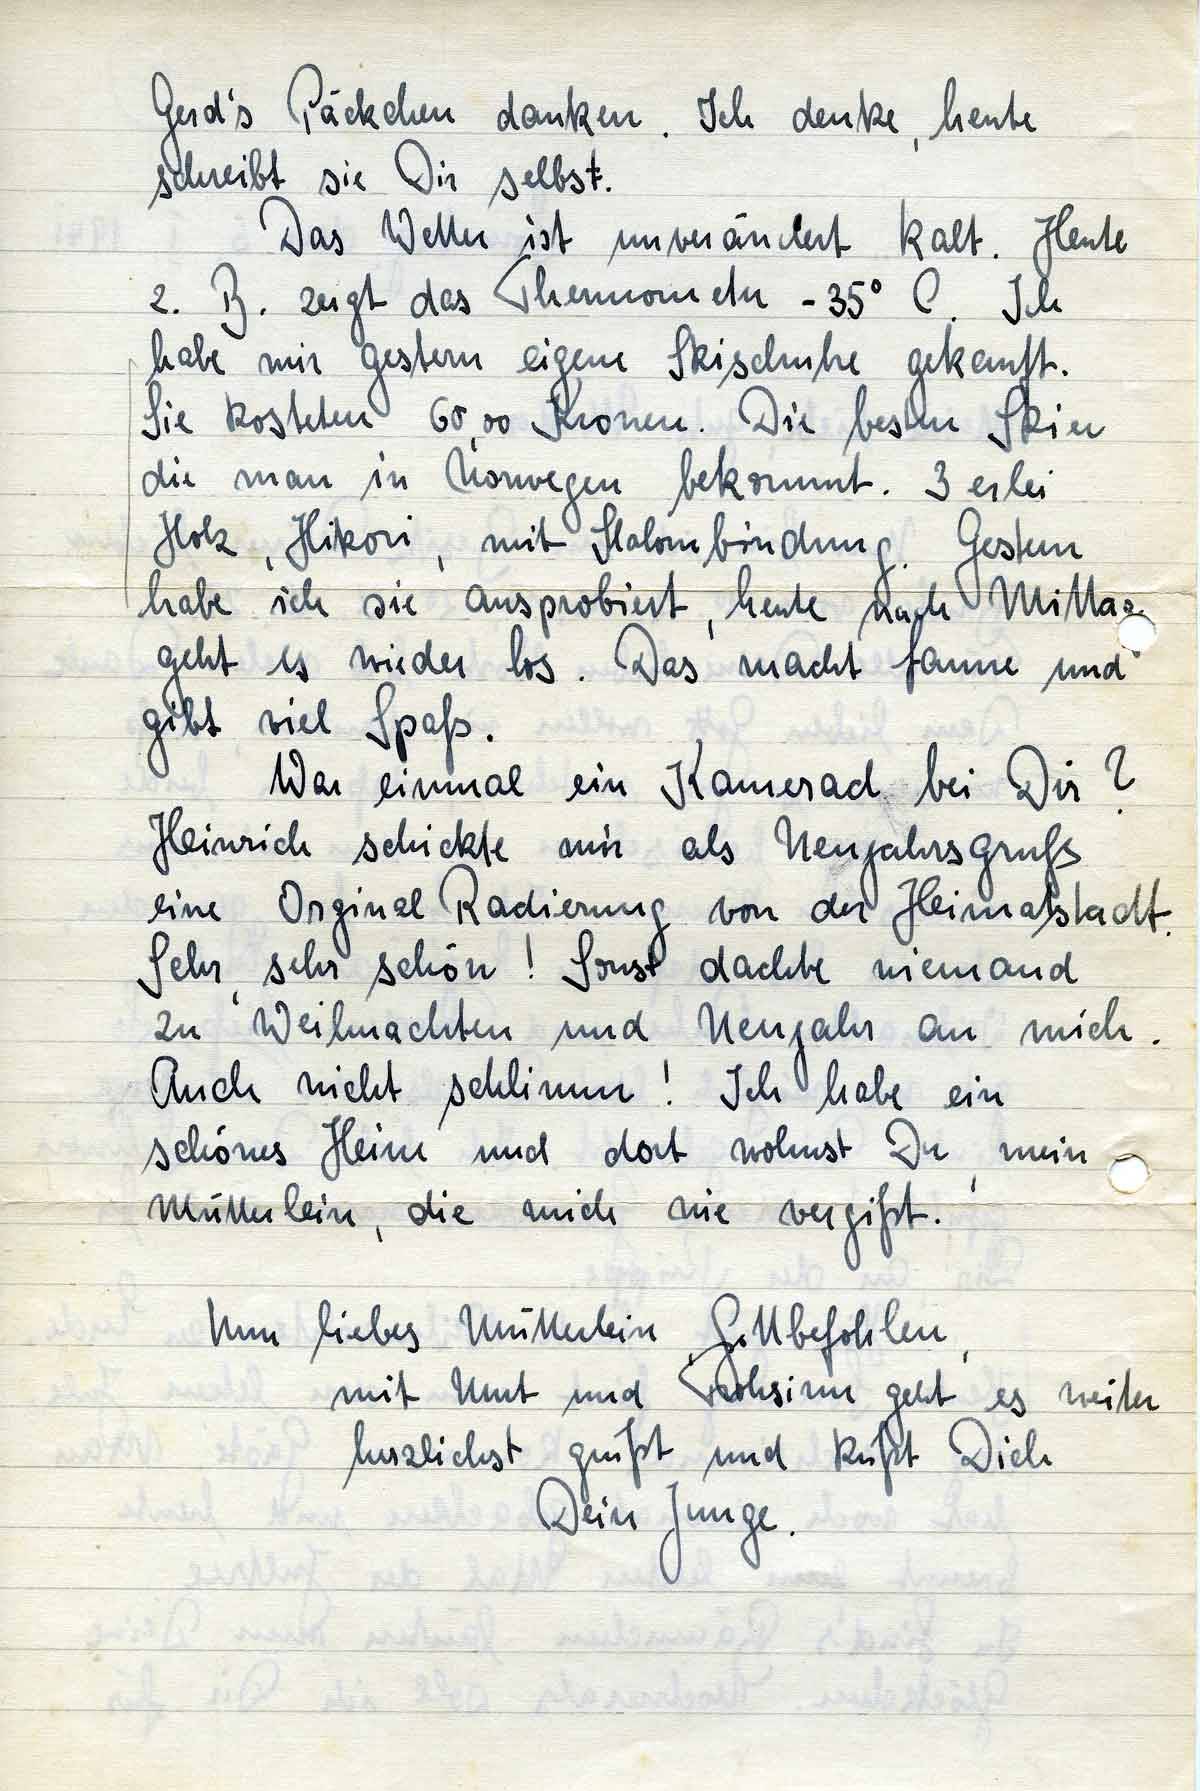 Gerd's Päckchen danken. Ich denke, heute
schreibt sie Dir selbst.
Das Wetter ist unverändert kalt. Heute
z. B. zeigt das Thermometer -35° C. Ich
habe mir gestern eigene Skischuhe gekauft.
Sie kosteten 60,00 Kronen. Die besten Skier
die man in Norwegen bekommt. 3 erlei
Holz, Hikori, mit Slalombindung. Gestern
habe ich sie ausprobiert, heute nach Mittag
geht es wieder los. Das macht Laune und
gibt viel Spaß.
War einmal ein Kamerad bei Dir?
Heinrich schickte mir als Neujahrsgruß
eine Orginal Radierung von der Heimatstadt.
Sehr, sehr schön! Sonst dachte niemand
zu Weihnachten und Neujahr an mich.
Auch nicht schlimm! Ich habe ein
schönes Heim und dort wohnst Du, mein
Mütterlein, die mich nie vergißt.
Nun liebes Mütterlein, Gottbefohlen,
mit Mut und Frohsinn geht es weiter
herzlichst grüßt und küßt Dich
Dein Junge.